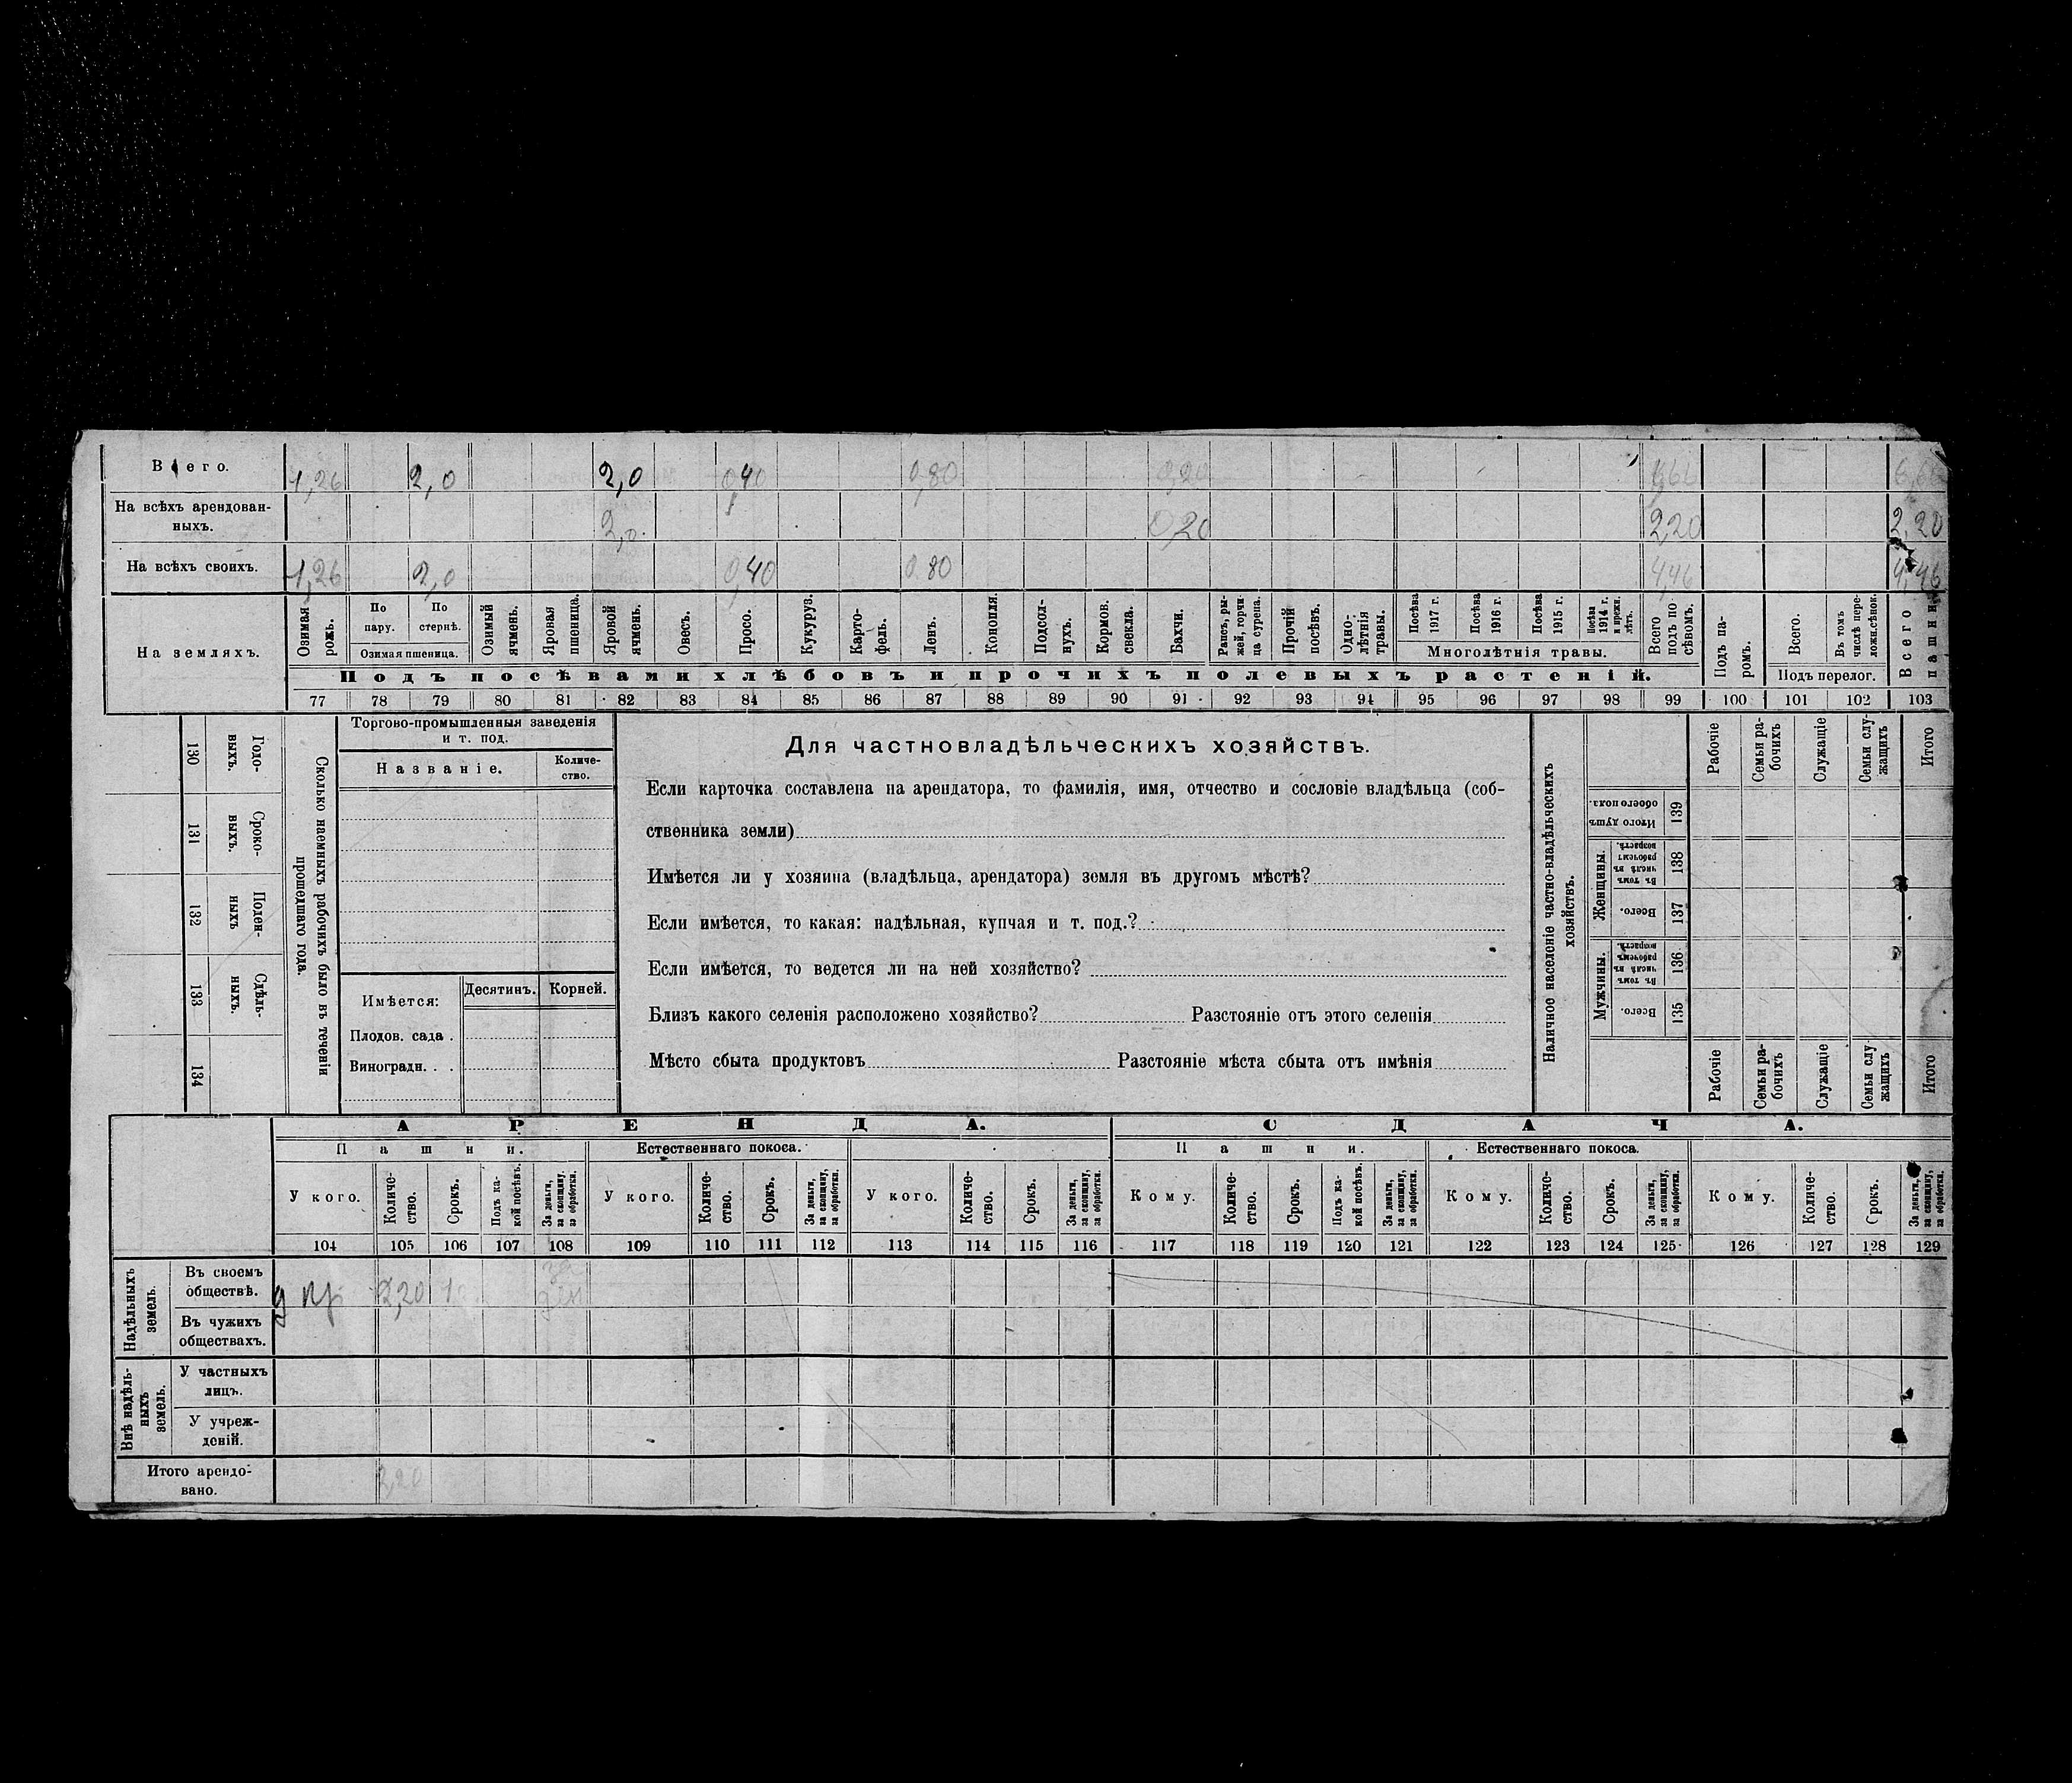 Всего. 1,26 2,0 2,0 0,40 0,80 0,20 6,66 6,66
На всѣхъ арендован-
ныхъ. 2,0 0,20 2,20 2,20
На всѣхъ своихъ. 1,26 2,0 0,40 0,80 4,46 4,46
На земляхъ.
Озимая рожь.
По пару.
По стернѣ.
Озимая пшеница.
Озимый ячмень.
Яровая пшеница.
Яровой ячмень.
Овесъ.
Просо.
Кукуруз.
Карто-
фель.
Ленъ.
Конопля.
Подсол-
нухъ.
Кормов. свекла.
Бахчи.
Рапсъ, ры-
жей, горчи-
ца сурепа.
Прочій посѣвъ.
Одно-
лѣтнія травы.
Посѣва 1917 г.
Посѣва 1916 г.
Посѣва 1915 г.
Посѣва 1914 г. и прежн. лѣтъ.
Многолѣтнія травы.
Всего подъ по-
сѣвомъ.
Подъ па-
ромъ.
Всего.
Въ томъ числѣ пере-
ложн.сѣнок.
Подъ перелог.
Всего пашни.
Подъ посѣвами хлѣбовъ и прочихъ полевыхъ растеній.
77 78 79 80 81 82 83 84 85 86 87 88 89 90 91 92 93 94 95 96 97 98 99 100 101 102 103
130 Годо-
выхъ.
131 Сроко-
выхъ.
132 Поден-
ныхъ
133 Сдѣль-
ныхъ.
134
Сколько наемныхъ рабочихъ было въ теченіи
прошедшаго года.
Торгово-промышленныя заведенія
и т. под.
Названіе.
Количе-
ство.
Имѣется: Десятинъ. Корней.
Плодов. сада .
Виноградн. . .
Для частновладѣльческихъ хозяйствъ.
Если карточка составлена на арендатора, то фамилія, имя, отчество и сословіе владѣльца (соб-
ственника земли)
Имѣется ли у хозяина (владѣльца, арендатора) земля въ другомъ мѣстѣ?
Если имѣется, то какая: надѣльная, купчая и т. под.?
Если имѣется, то ведется ли на ней хозяйство?
Близъ какого селенія расположено хозяйство? Разстояніе отъ этого селенія
Мѣсто сбыта продуктовъ Разстояніе мѣста сбыта отъ имѣнія
Наличное населеніе частно-владѣльческихъ
хозяйствъ.
Рабочіе
Семьи ра-
бочихъ
Служащіе
Семьи слу-
жащихъ
Итого
Итого душъ обоего пола. 139
Женщины.
Въ томъ числѣ въ рабочемъ возрастѣ. 138
Всего. 137
Мужчины.
Въ томъ числѣ въ рабочемъ возрастѣ. 136
Всего. 135
Рабочіе
Семьи ра-
бочихъ
Служащіе
Семьи слу-
жащихъ
Итого
АРЕНДА. СДАЧА.
Пашни. Естественнаго покоса. Пашни. Естественнаго покоса.
У кого.
Количе-
ство.
Срокъ.
Подъ ка-
кой посѣвъ.
За деньги, за скопщину, за обработки.
У кого.
Количе-
ство.
Срокъ.
За деньги, за скопщину, за обработки.
У кого.
Количе-
ство.
Срокъ.
За деньги, за скопщину, за обработки.
Кому.
Количе-
ство.
Срокъ.
Подъ ка-
кой посѣвъ.
За деньги, за скопщину, за обработки.
Кому.
Количе-
ство.
Срокъ.
За деньги, за скопщину, за обработки.
Кому.
Количе-
ство.
Срокъ.
За деньги, за скопщину, за обработки.
104 105 106 107 108 109 110 111 112 113 114 115 116 117 118 119 120 121 122 123 124 125 126 127 128 129
Надѣльныхъ земель.
Въ своемъ
обществѣ. 2,20
Въ чужихъ
обществахъ.
Внѣ надѣль-
ныхъ земель.
У частныхъ
лицъ.
У учреж-
деній.
Итого арендо-
вано. 2,20